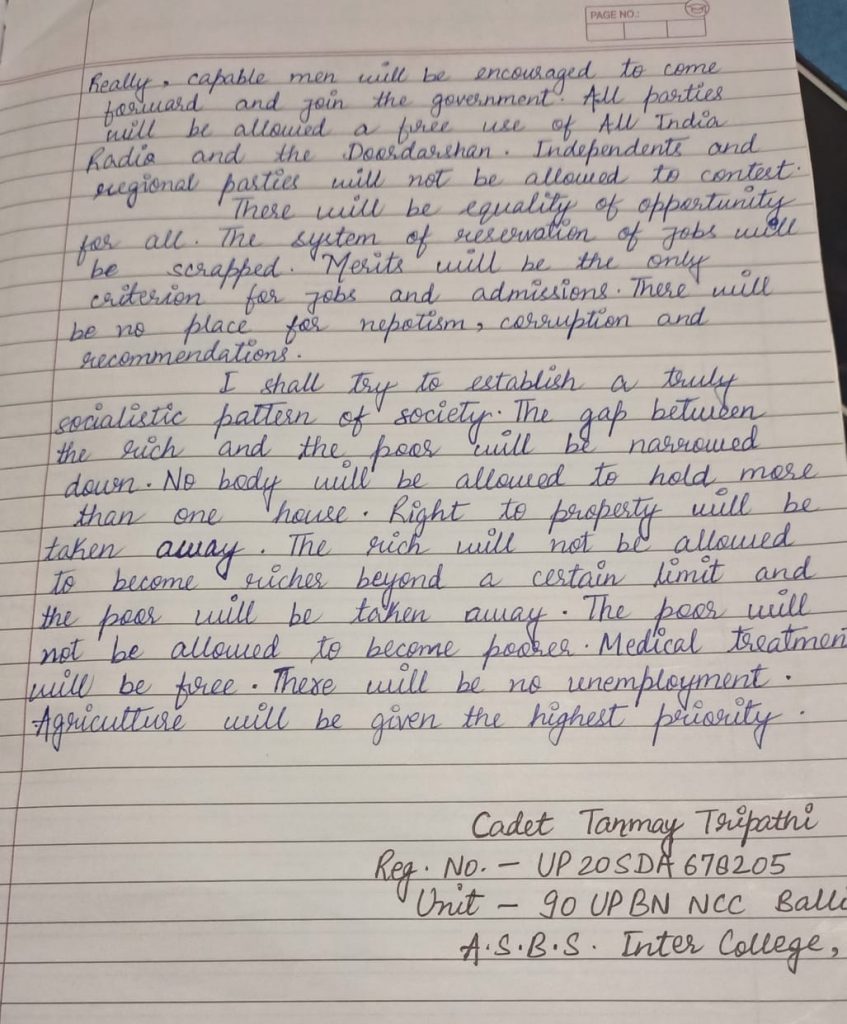 PAGE NO.:
Really, capable men will be encouraged to come
forward and join the government. All parties
will be allowed a free use of All India
Radio and the Doordarshan. Independents and
regional parties will not be allowed to contest.
There will be equality of opportunity
for all. The system of reservation of jobs will
be scrapped. Merits will be the only
criterion for jobs and admissions. There will
be no place for nepotism, corruption and
recommendations.
I shall try to establish a truly
socialistic pattern of society. The gap between
the rich and the poor will be narrowed
down. No body will be allowed to hold more
than one house. Right to property will be
taken away. The rich will not be allowed
to become richer beyond a certain limit and
the poor will be taken away. The poor will
not be allowed to become poorer. Medical treatmen
will be free. There will be no unemployment.
Agriculture will be given the highest priority.
Cadet Tanmay Tripathi
Reg. No. - UP20SDA678205
Unit - 90 UP BN NCC Balli
A.S.B.S. Inter College,